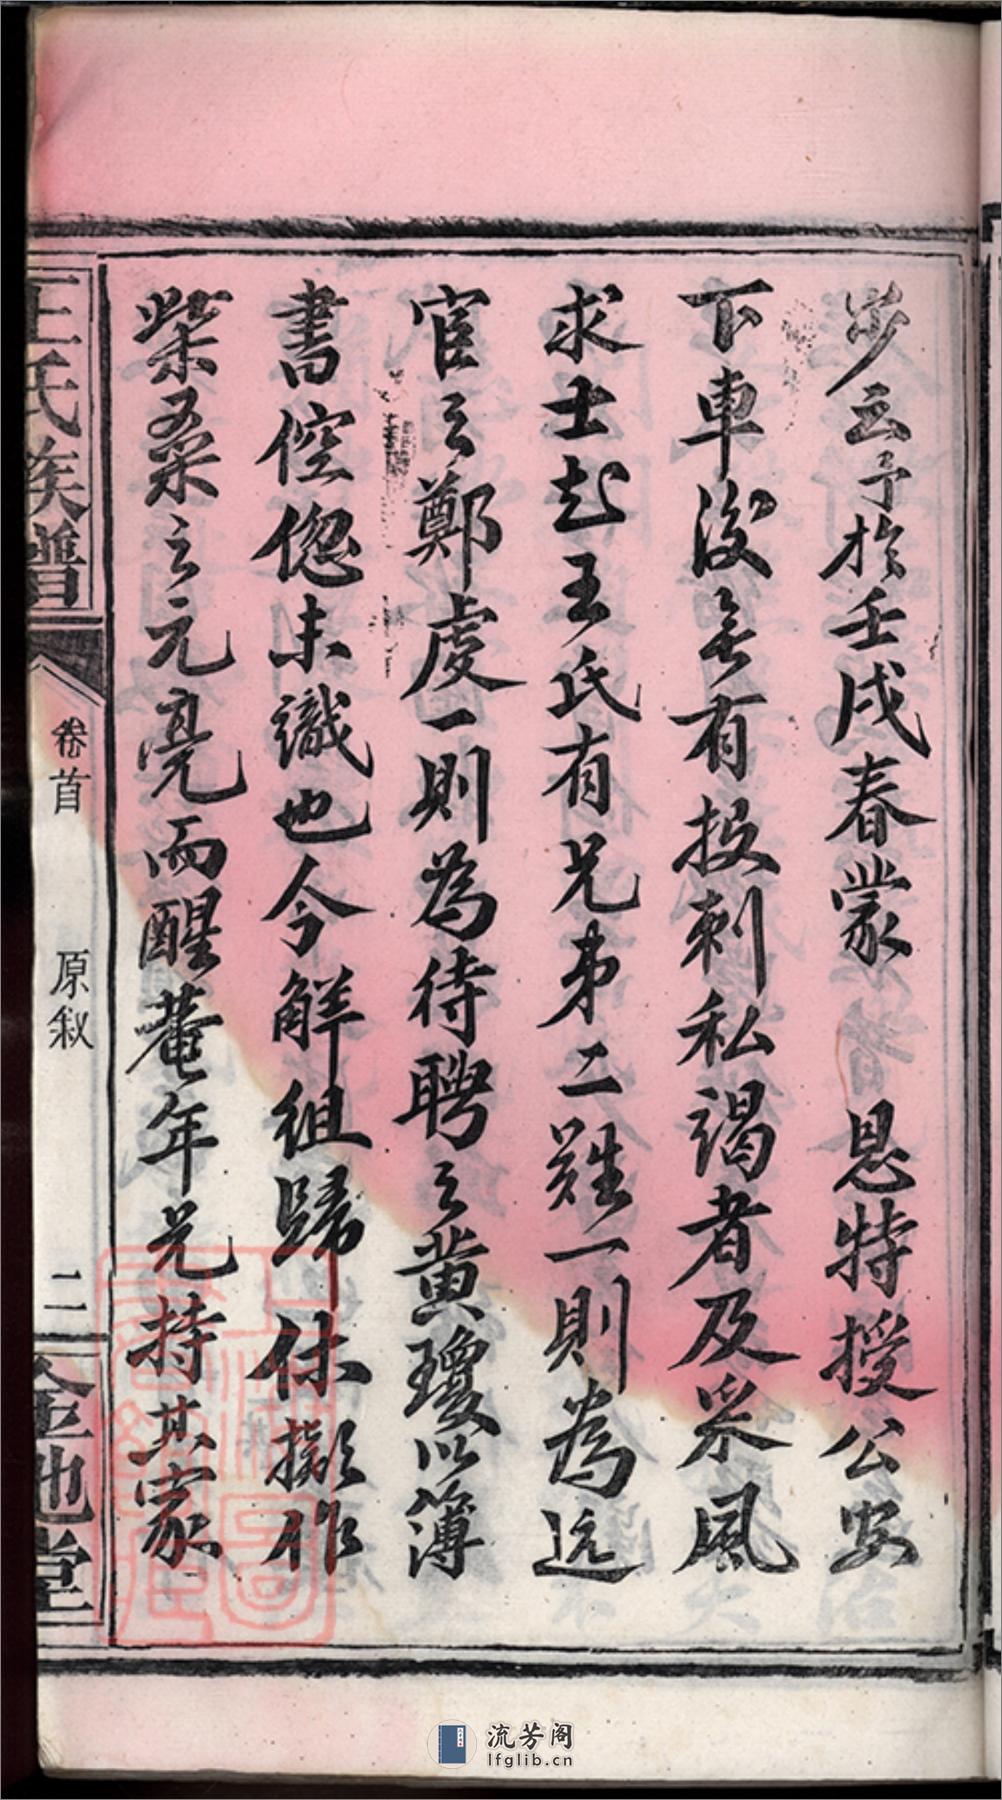 岁云予於壬戌春蒙　恩特授公安
下車後無有投刺私謁者及采風
求士起王氏有兄弟二難一則為远
宦之鄭虔一則為待聘之黄瓊以簿
書倥偬未識也今觧组歸休擬作
柴桑之元亮而醒菴年兄持其家
王氏族譜
卷首
原叙
二
金地堂
流芳阁
lfglib.cn